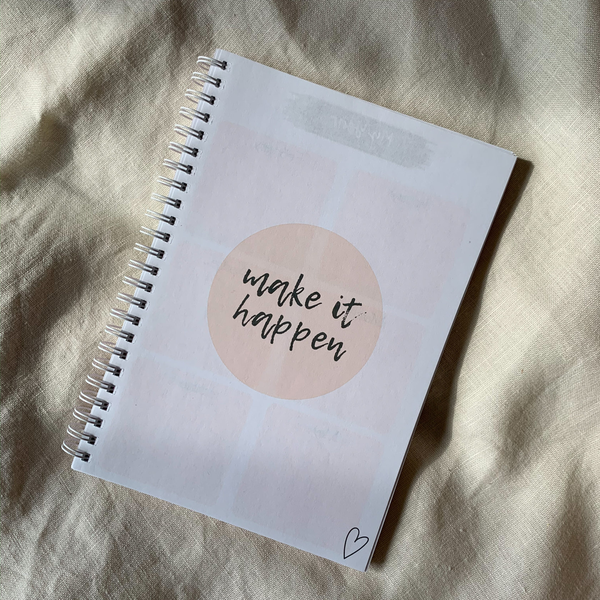 make it
happen